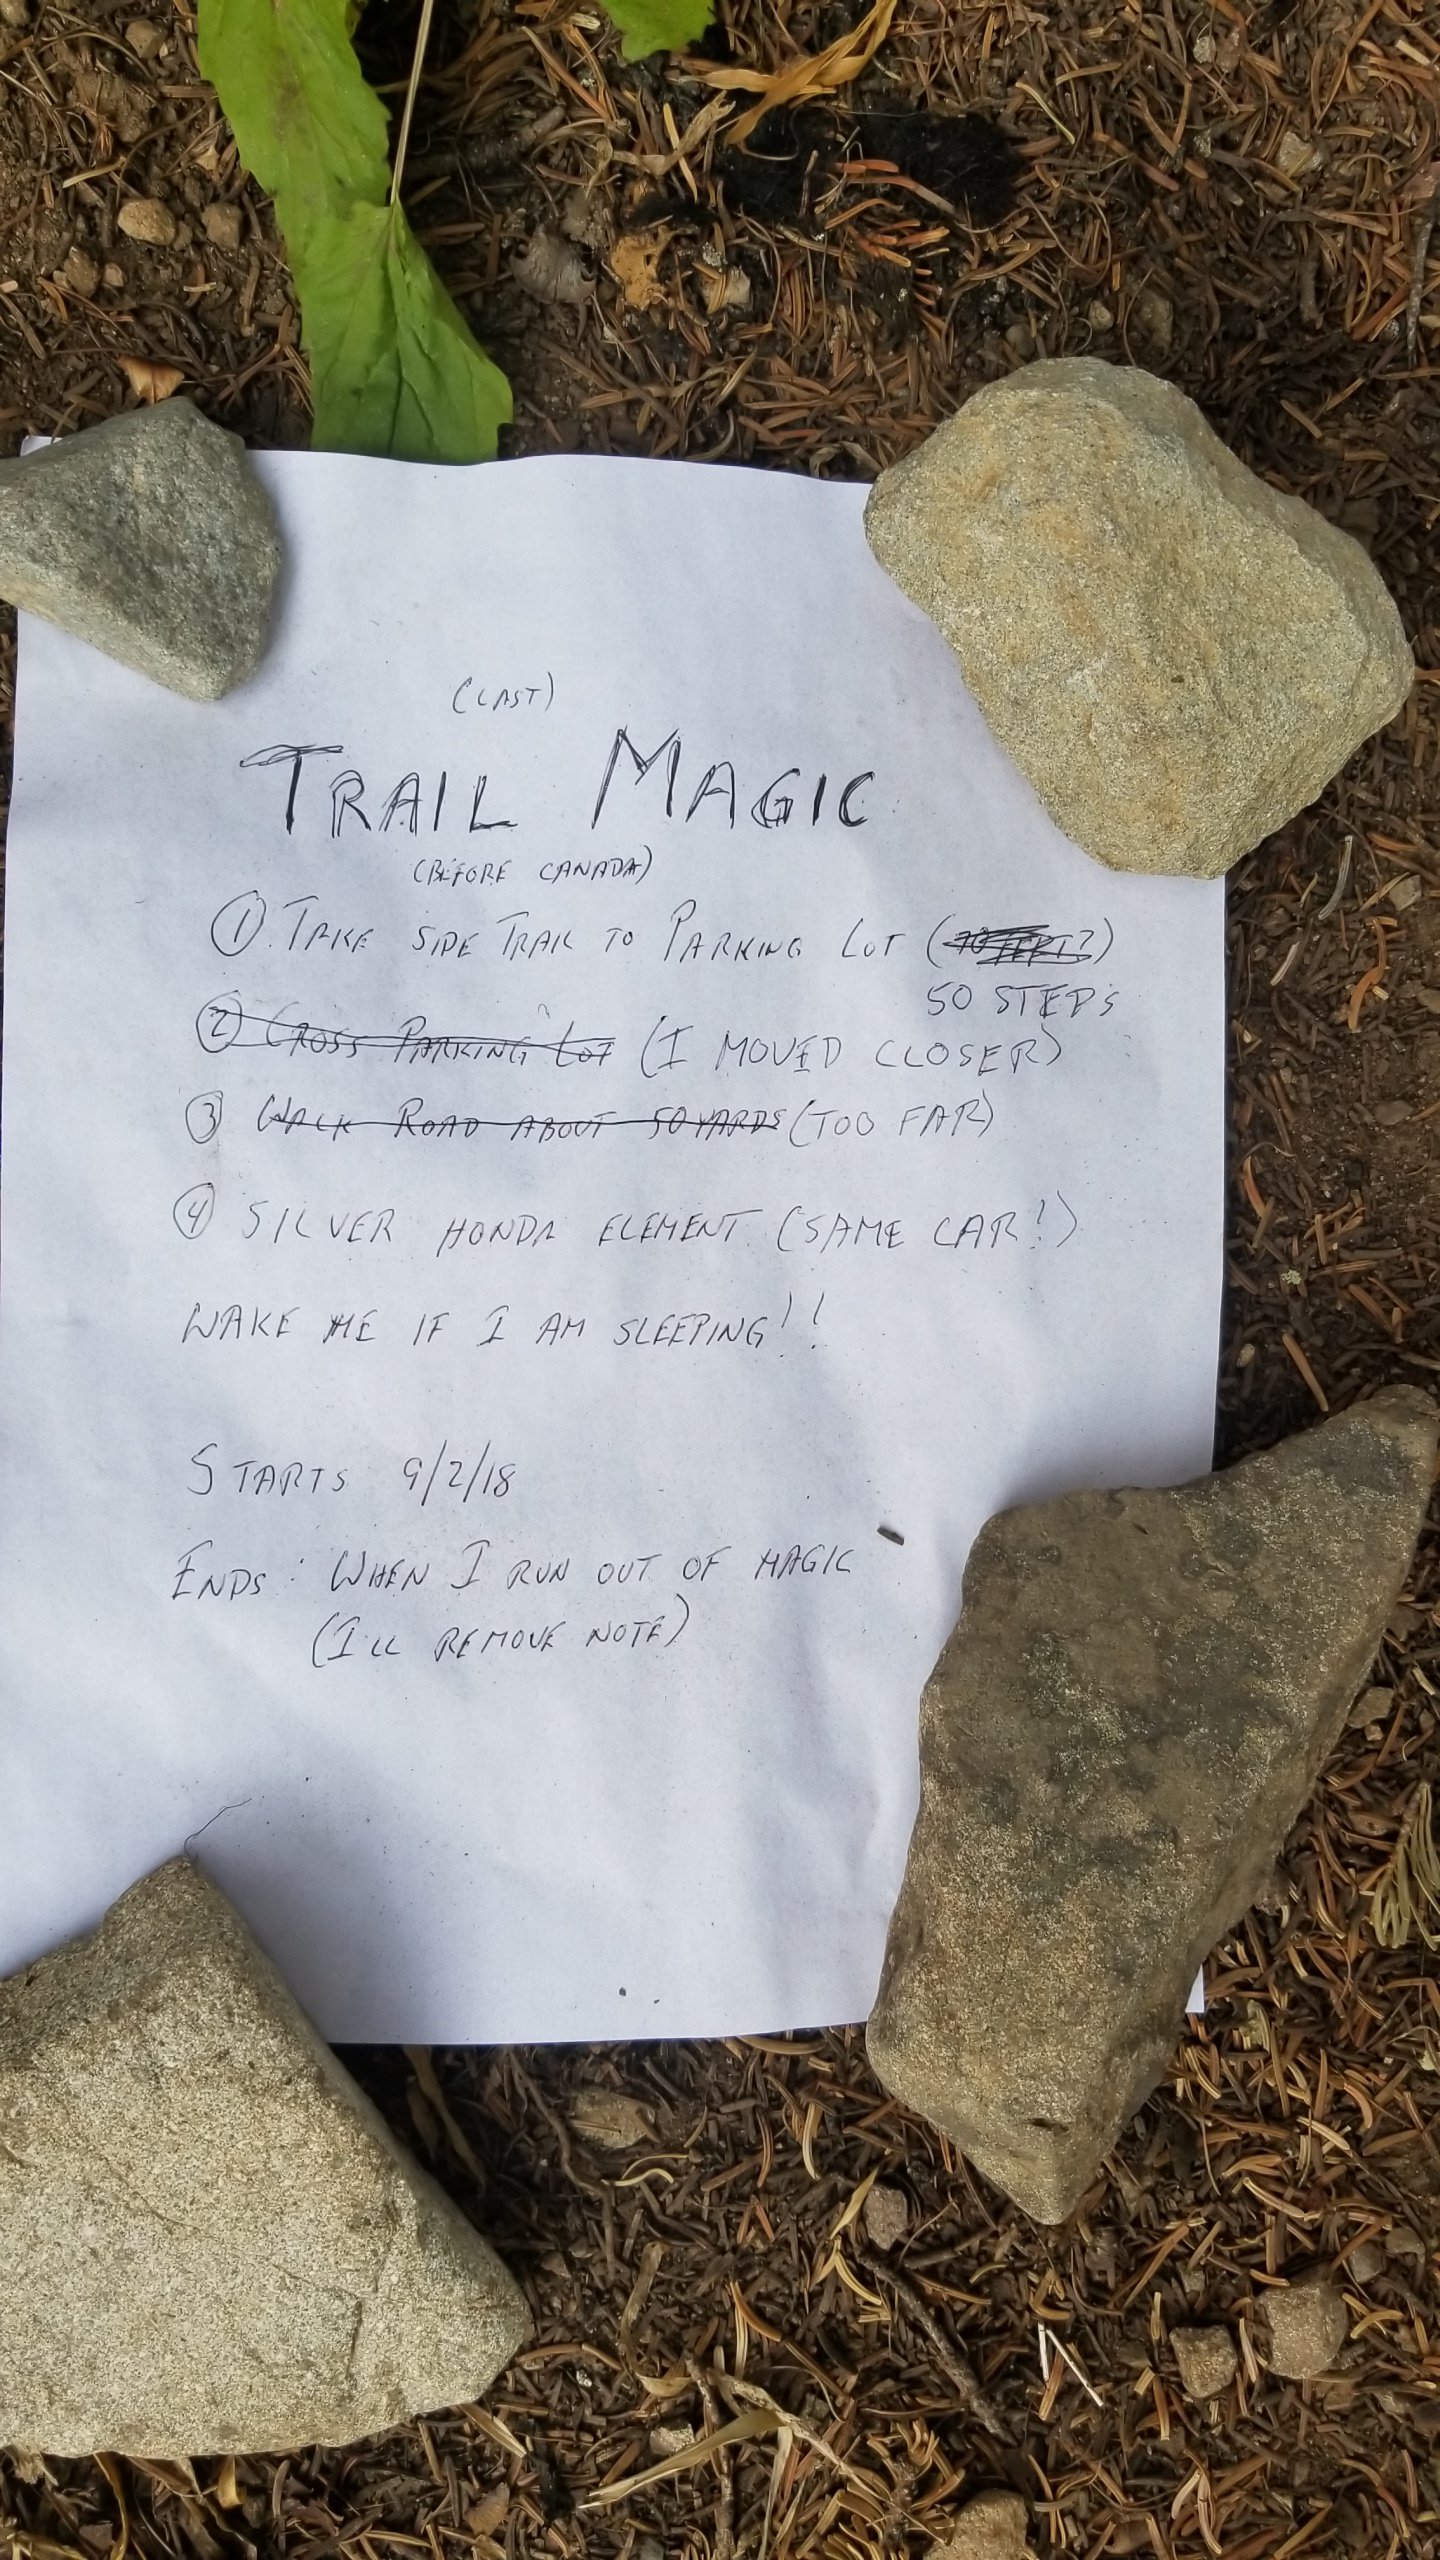 (LAST)
TRAIL MAGIC
(BEFORE CANADA)
① TAKE SIDE TRAIL TO PARKING LOT ( )
50 STEPS
② CROSS PARKING LOT (I MOVED CLOSER)
③ WALK ROAD ABOUT 50 YARDS (TOO FAR)
④ SILVER HONDA ELEMENT (SAME CAR!)
WAKE ME IF I AM SLEEPING!!
STARTS 9/2/18
ENDS: WHEN I RUN OUT OF MAGIC
(I'LL REMOVE NOTE)